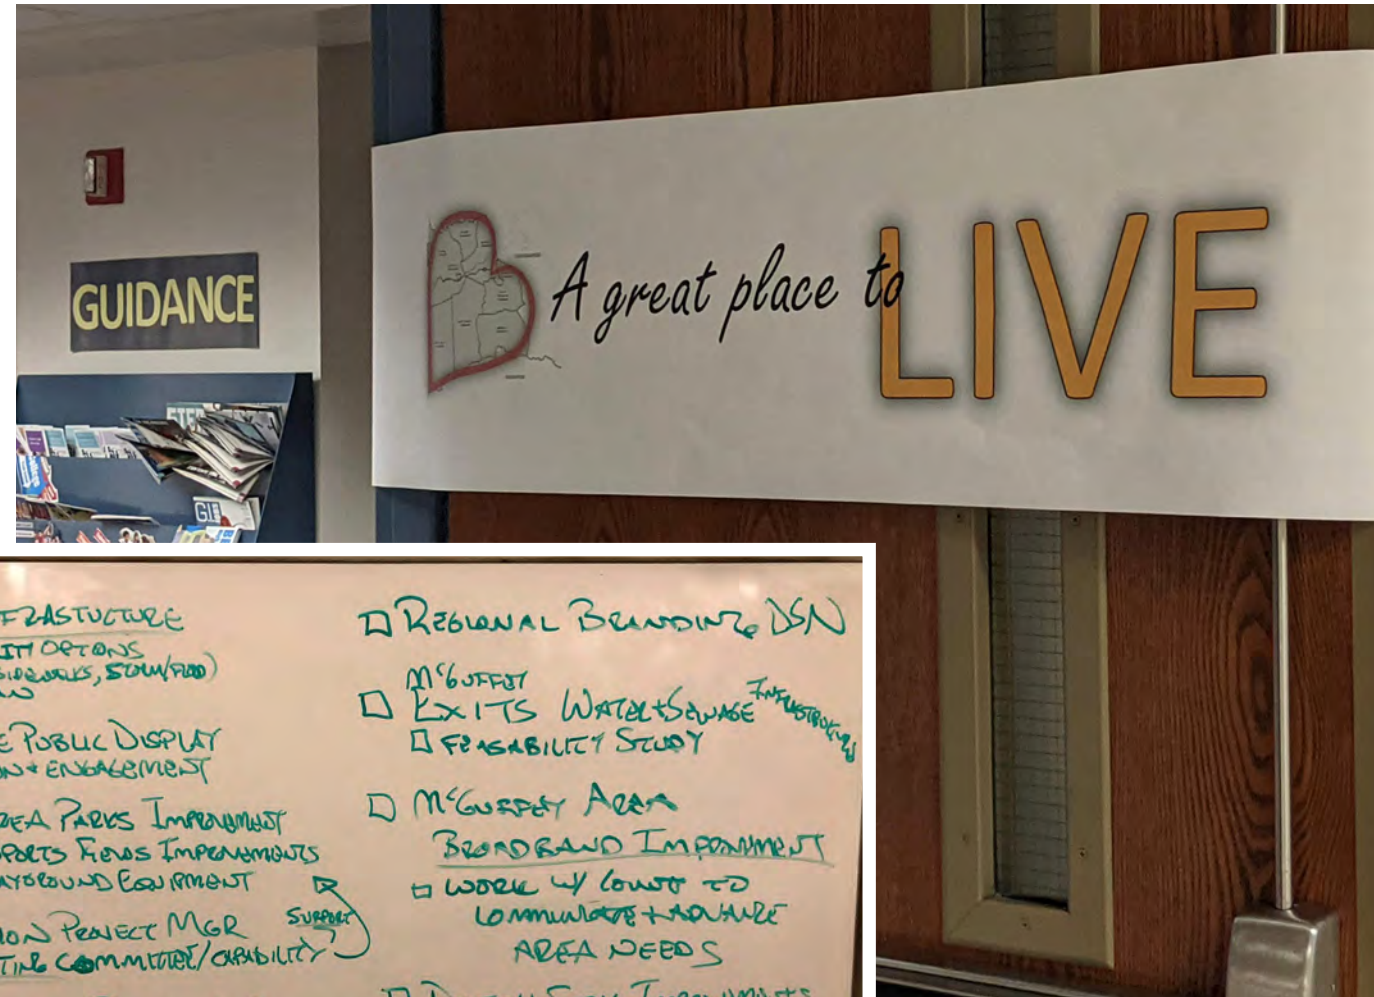 GUIDANCE
A great place to LIVE
STEP
G.I.
FRASTUCTURE
OPTONS
SIDEWALKS, STORM/FLOOD)
E PUBLIC DISPLAY
ON + ENGAGEMENT
REA PARKS IMPROVEMENT
SPORTS FIELDS IMPROVEMENTS
AYGROUND EQUIPMENT
ION PROJECT MGR
SUPPORT
TING COMMITTEE/CAPABILITY
REGIONAL BRANDING DSN
McGUFFEY
EXITS WATER + SEWAGE INFRASTRUCTURE
FEASABILITY STUDY
McGUFFEY AREA
BROADBAND IMPROVMENT
WORK W/ COUNTY TO
COMMUNICATE + ADVANCE
AREA NEEDS